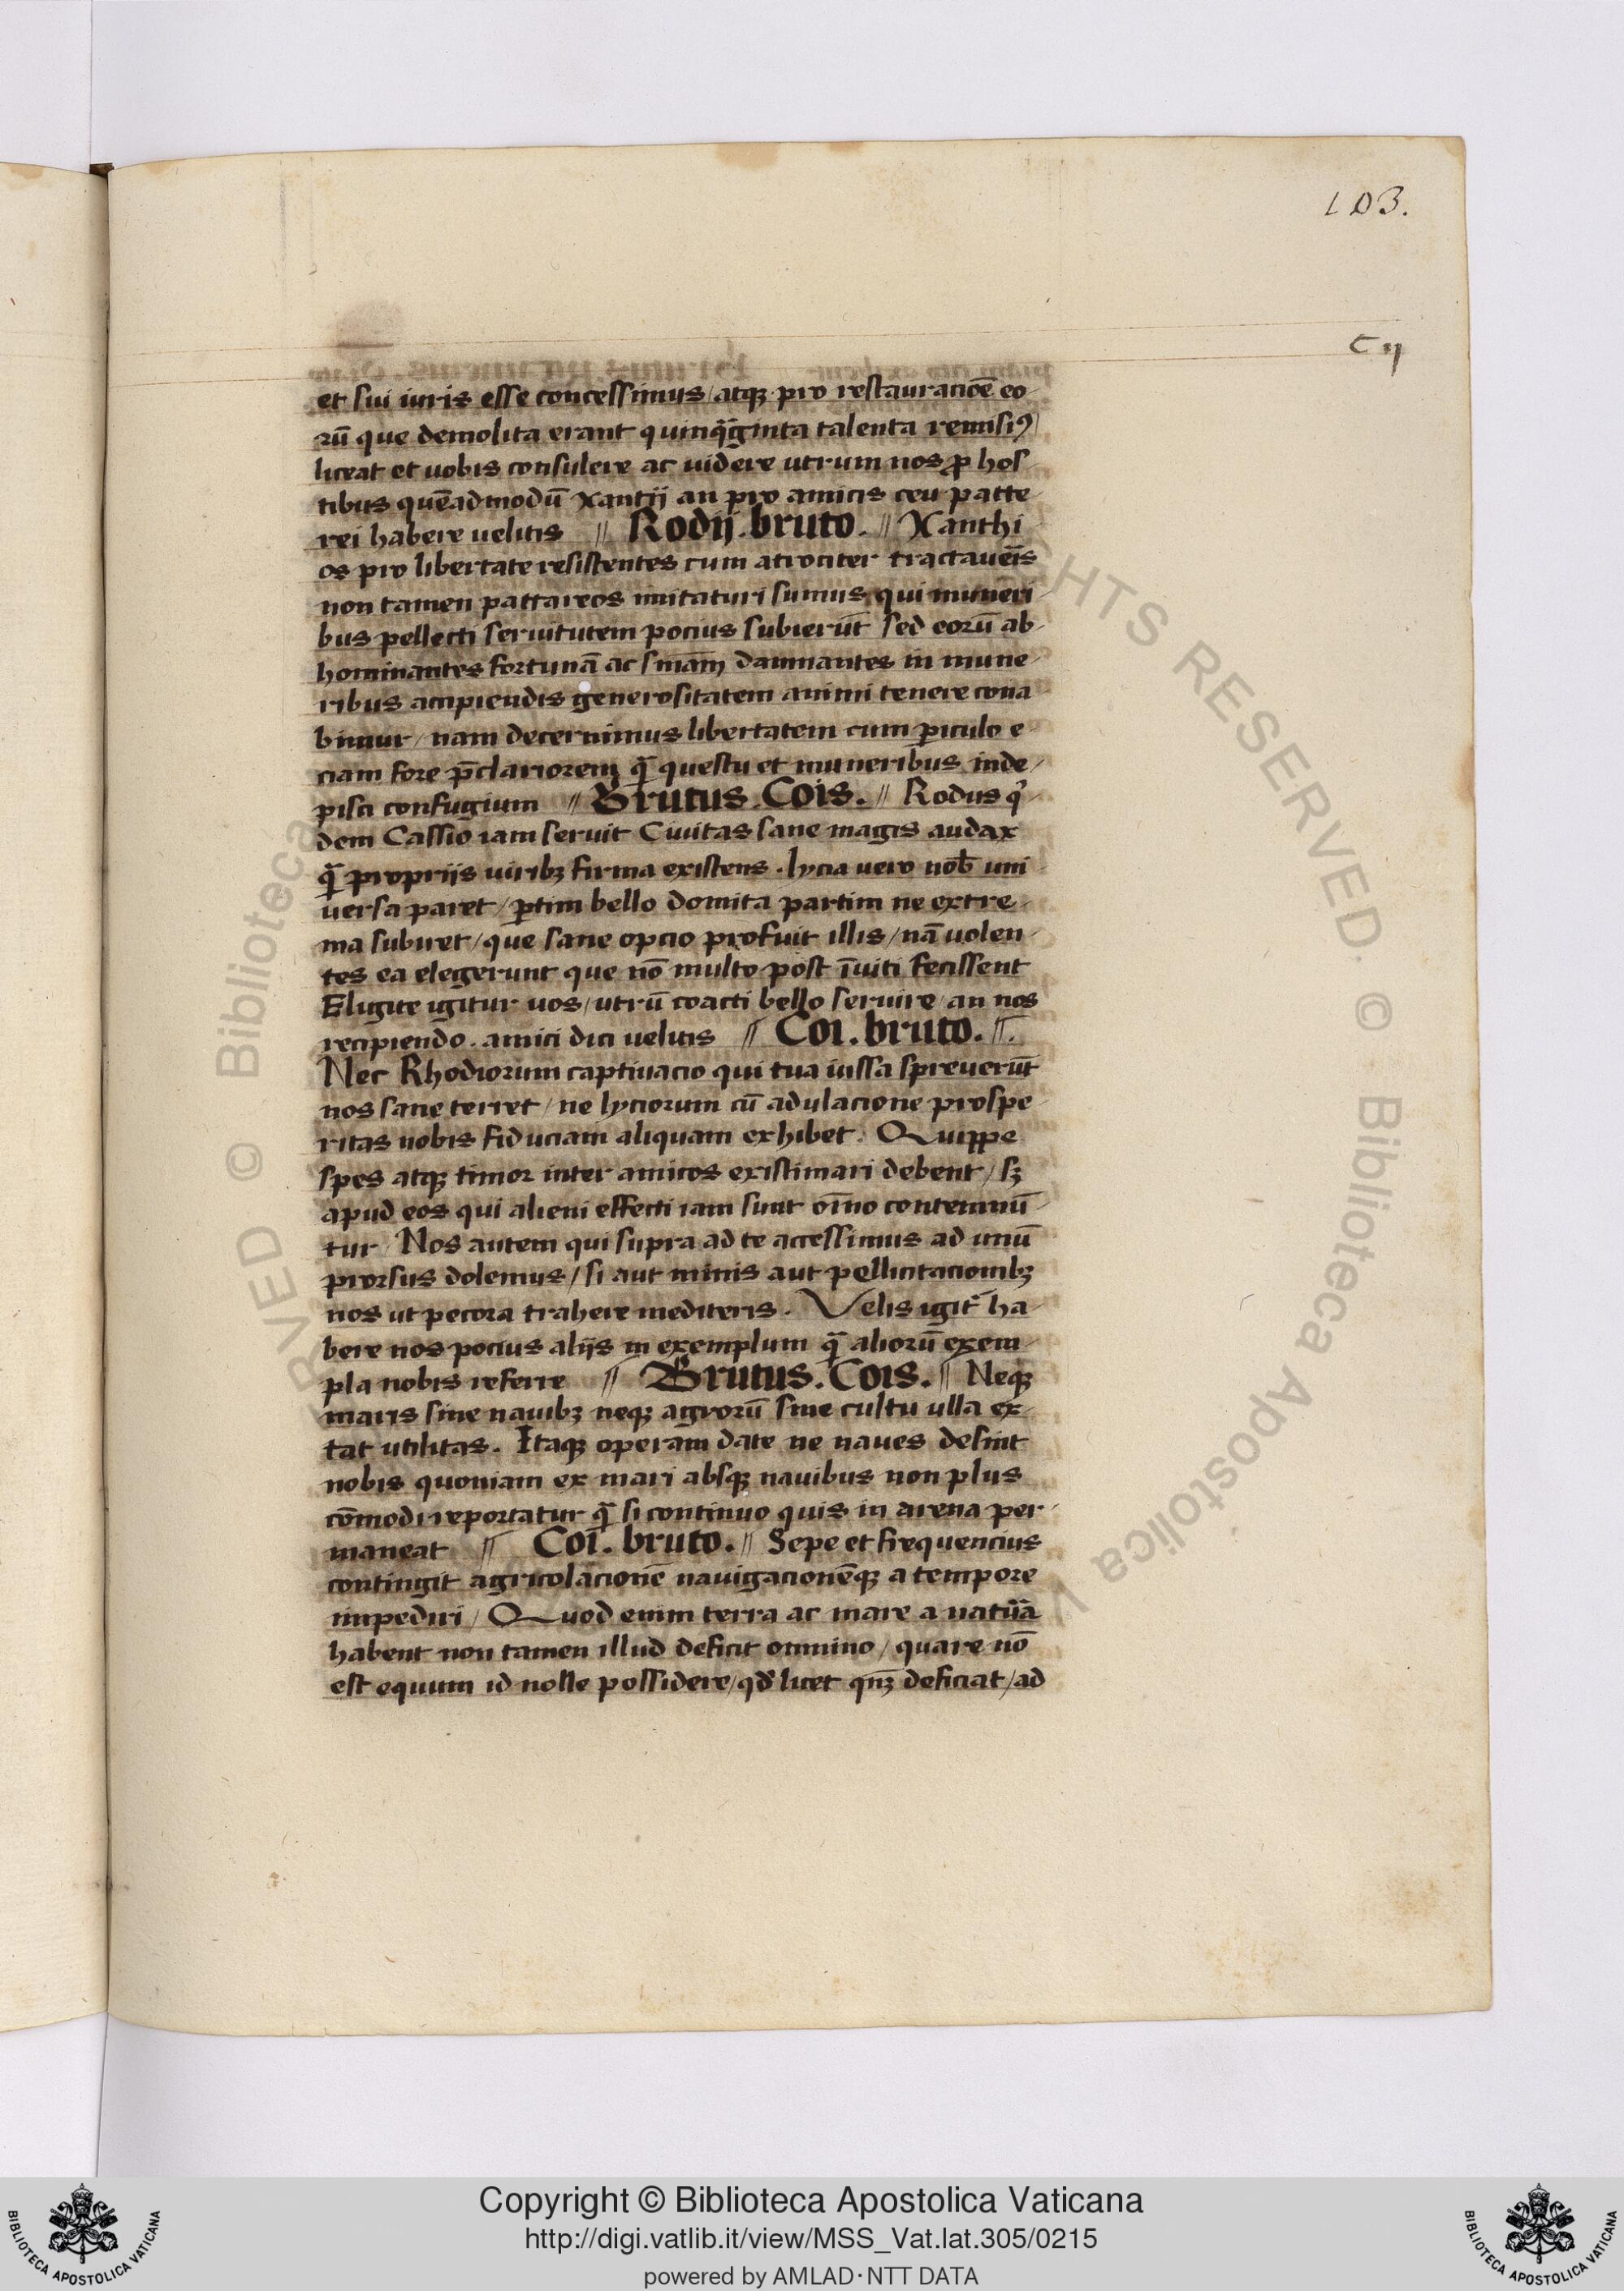 103.
C ij
et sui iuris esse concessimus / atqꝫ pro restauracioē eo
rū que demolita erant quinq̄ginta talenta remisiꝰ /
liceat et uobis consulere ac uidere utrum nos ꝓ hos
tibus quēadmodū Xantij an pro amicis ceu patte
rei habere uelitis // Rodij . bruto . // Xanthi
os pro libertate resistentes cum atrociter tractaueīs
non tamen pattareos imitaturi sumus qui muneri
bus pellecti seruitutem pocius subierūt sed eorū ab
hominantes fortunā ac sniam̄ damnantes in mune
ribus accipiendis generositatem animi tenere cona
bimur / nam decernimus libertatem cum ꝑiculo e
ciam fore p̄clariorem q̄ questu et muneribus inde /
pisci confugium // Brutus . Cois . // Rodus qͥ
dem Cassio iam seruit Ciuitas sane magis audax
q̄ propriis uiribꝫ firma existens . lycia uero nob̄ uni
uersa paret / ꝑtim bello domita partim ne extre
ma subiret / que sane opcio profuit illis / nā uolen
tes ea elegerunt que nō multo post īuiti fecissent
Eligite igitur uos / utrū coacti bello seruire / an nos
recipiendo . amici dici uelitis // Coi . bruto . //.
Nec Rhodiorum captiuacio qui tua iussa spreuerūt
nos sane terret / ne lyciorum cū adulacione prospe
ritas nobis fiduciam aliquam exhibet . Quippe
spes atqꝫ timor inter amicos existimari debent / sꝫ
apud eos qui alieni effecti iam sunt oīno contemnū
tur / Nos autem qui supra ad te accessimus ad unū
prorsus dolemus / si aut minis aut pellicitacionibꝫ
nos ut pecora trahere mediteris . Velis igit᷑ ha
bere nos pocius aliis in exemplum q̄ aliorū exem
pla nobis referre // Brutus . Cois . // Neqꝫ
maris sine nauibꝫ neqꝫ agrorū sine cultu ulla ex
tat utilitas . Itaqꝫ operam date ne naues desint
nobis quoniam ex mari absqꝫ nauibus non plus
cōmodi reportatur q̄ si continuo quis in arena per
maneat // Coi . bruto . // Sepe et frequencius
contingit agricolacionē nauigacionēqꝫ a tempore
impediri / Quod enim terra ac mare a natūa
habent non tamen illud deficit omnino / quare nō
est equum id nolle possidere / qđ licet qn̄qꝫ deficiat / ad
Copyright © Biblioteca Apostolica Vaticana
http://digi.vatlib.it/view/MSS_Vat.lat.305/0215
powered by AMLAD·NTT DATA
BIBLIOTECA APOSTOLICA VATICANA
BIBLIOTECA APOSTOLICA VATICANA